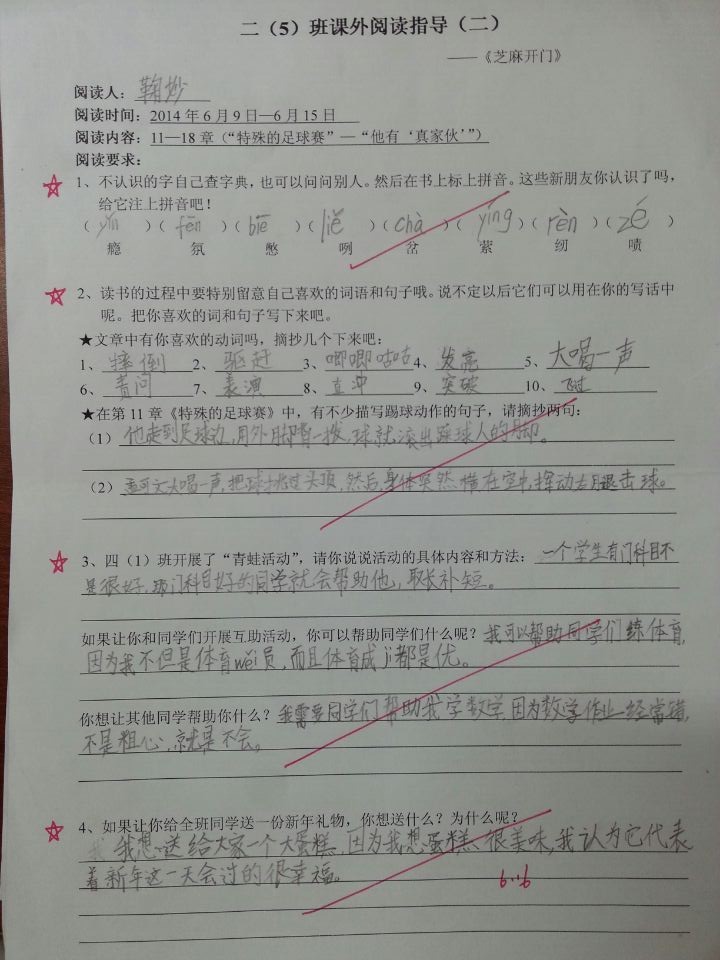 二（5）班课外阅读指导（二）
——《芝麻开门》
阅读人：鞠炒
阅读时间：2014年6月9日—6月15日
阅读内容：11—18章（“特殊的足球赛”—“他有‘真家伙’”）
阅读要求：
1、不认识的字自己查字典，也可以问问别人。然后在书上标上拼音。这些新朋友你认识了吗，
给它注上拼音吧！
（yǐn）（fēn）（biē）（liě）（chà）（yíng）（rèn）（zé）
瘾 氛 憋 咧 岔 萦 纫 啧
2、读书的过程中要特别留意自己喜欢的词语和句子哦。说不定以后它们可以用在你的写话中
呢。把你喜欢的词和句子写下来吧。
★文章中有你喜欢的动词吗，摘抄几个下来吧：
1、摔倒 2、驱赶 3、唧唧咕咕 4、发亮 5、大喝一声
6、责问 7、表演 8、直冲 9、突破 10、飞过
★在第11章《特殊的足球赛》中，有不少描写踢球动作的句子，请摘抄两句：
（1）他走到足球边，用外脚背一拨，球就滚出踩球人的脚。
（2）孟可文大喝一声，把球挑过头顶，然后，身体突然横在空中，挥动右腿击球。
3、四（1）班开展了“青蛙活动”，请你说说活动的具体内容和方法：一个学生有门科目不
是很好，那门科目好的同学就会帮助他，取长补短。
如果让你和同学们开展互助活动，你可以帮助同学们什么呢？我可以帮助同学们练体育，
因为我不但是体育wěi员，而且体育成jì都是优。
你想让其他同学帮助你什么？我需要同学们帮助我学数学，因为数学作业经常错，
不是粗心，就是不会。
4、如果让你给全班同学送一份新年礼物，你想送什么？为什么呢？
我想送给大家一个大蛋糕，因为我想蛋糕很美味，我认为它代表
着新年这一天会过的很幸福。
6.16